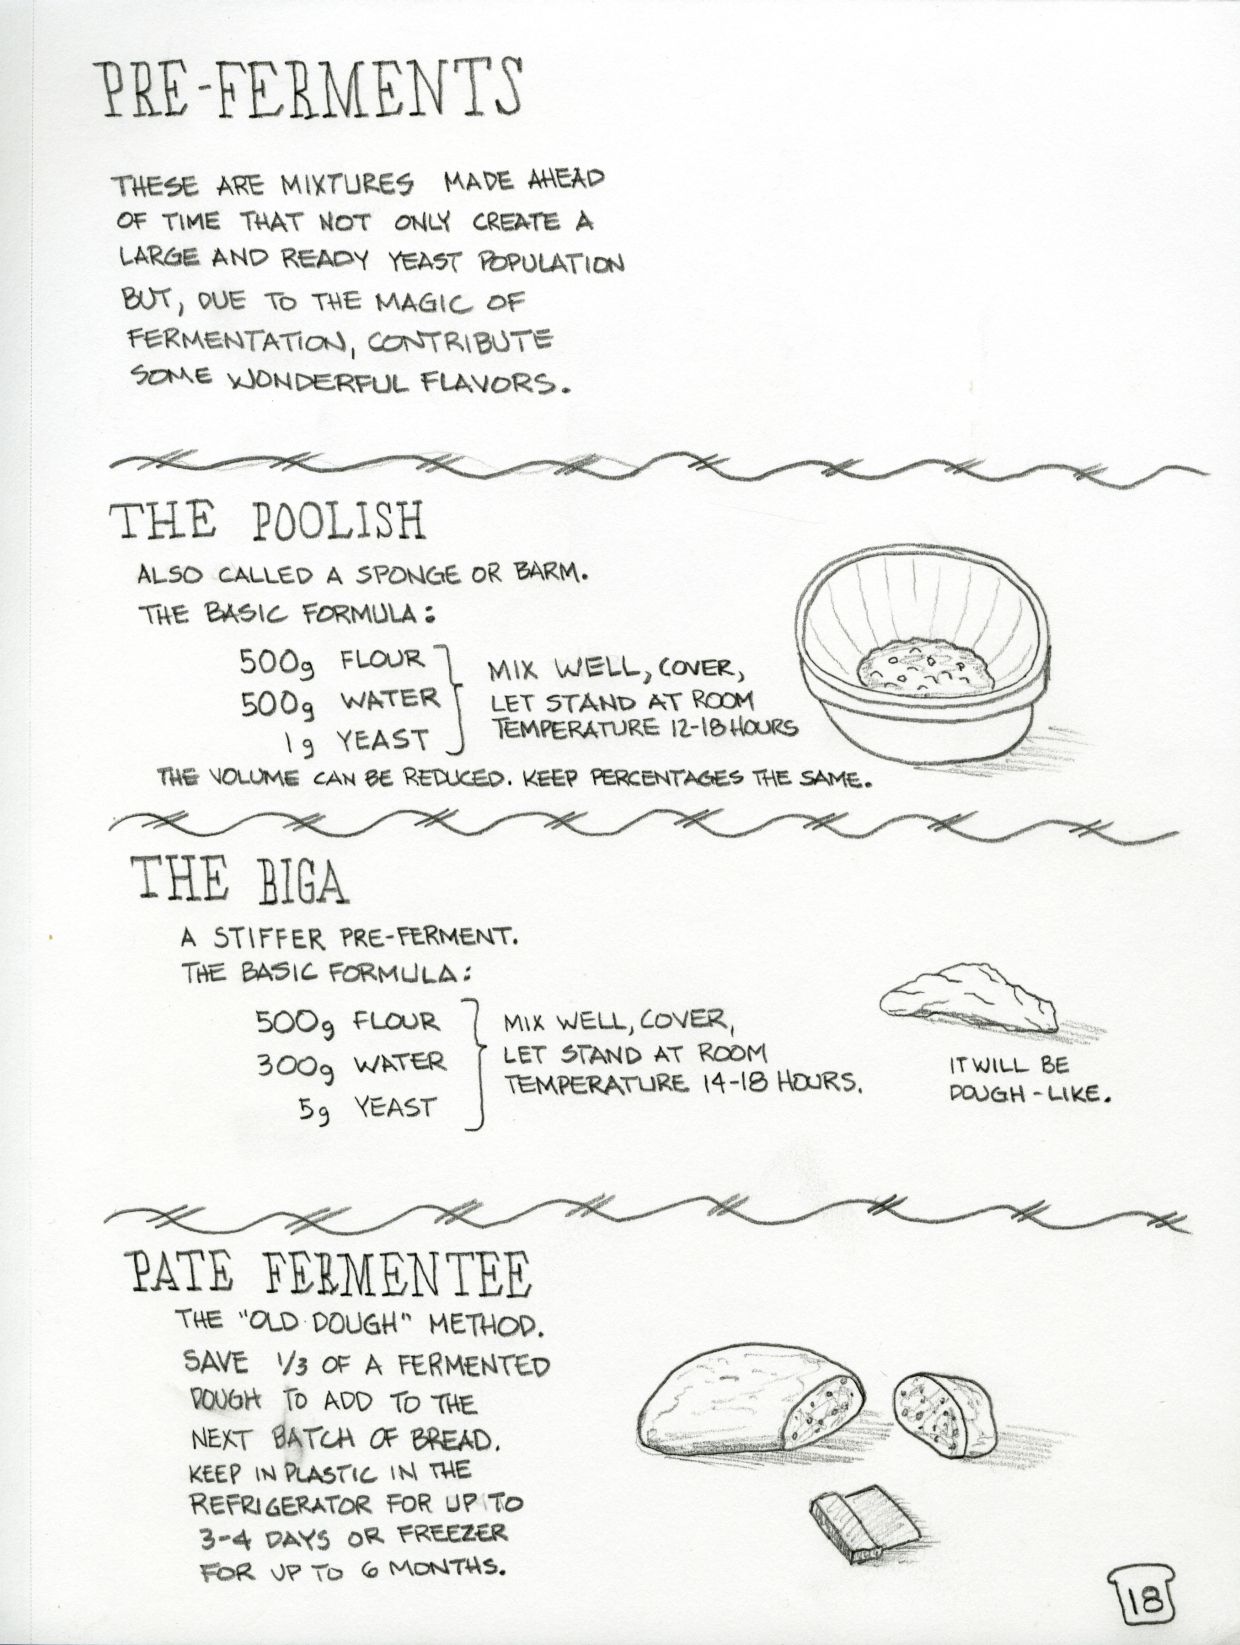 PRE-FERMENTS
THESE ARE MIXTURES MADE AHEAD
OF TIME THAT NOT ONLY CREATE A
LARGE AND READY YEAST POPULATION
BUT, DUE TO THE MAGIC OF
FERMENTATION, CONTRIBUTE
SOME WONDERFUL FLAVORS.
THE POOLISH
ALSO CALLED A SPONGE OR BARM.
THE BASIC FORMULA:
500g FLOUR
500g WATER
1g YEAST
MIX WELL, COVER,
LET STAND AT ROOM
TEMPERATURE 12-18 HOURS
THE VOLUME CAN BE REDUCED. KEEP PERCENTAGES THE SAME.
THE BIGA
A STIFFER PRE-FERMENT.
THE BASIC FORMULA:
500g FLOUR
300g WATER
5g YEAST
MIX WELL, COVER,
LET STAND AT ROOM
TEMPERATURE 14-18 HOURS.
IT WILL BE
DOUGH-LIKE.
PATE FERMENTEE
THE "OLD DOUGH" METHOD.
SAVE 1/3 OF A FERMENTED
DOUGH TO ADD TO THE
NEXT BATCH OF BREAD.
KEEP IN PLASTIC IN THE
REFRIGERATOR FOR UP TO
3-4 DAYS OR FREEZER
FOR UP TO 6 MONTHS.
18